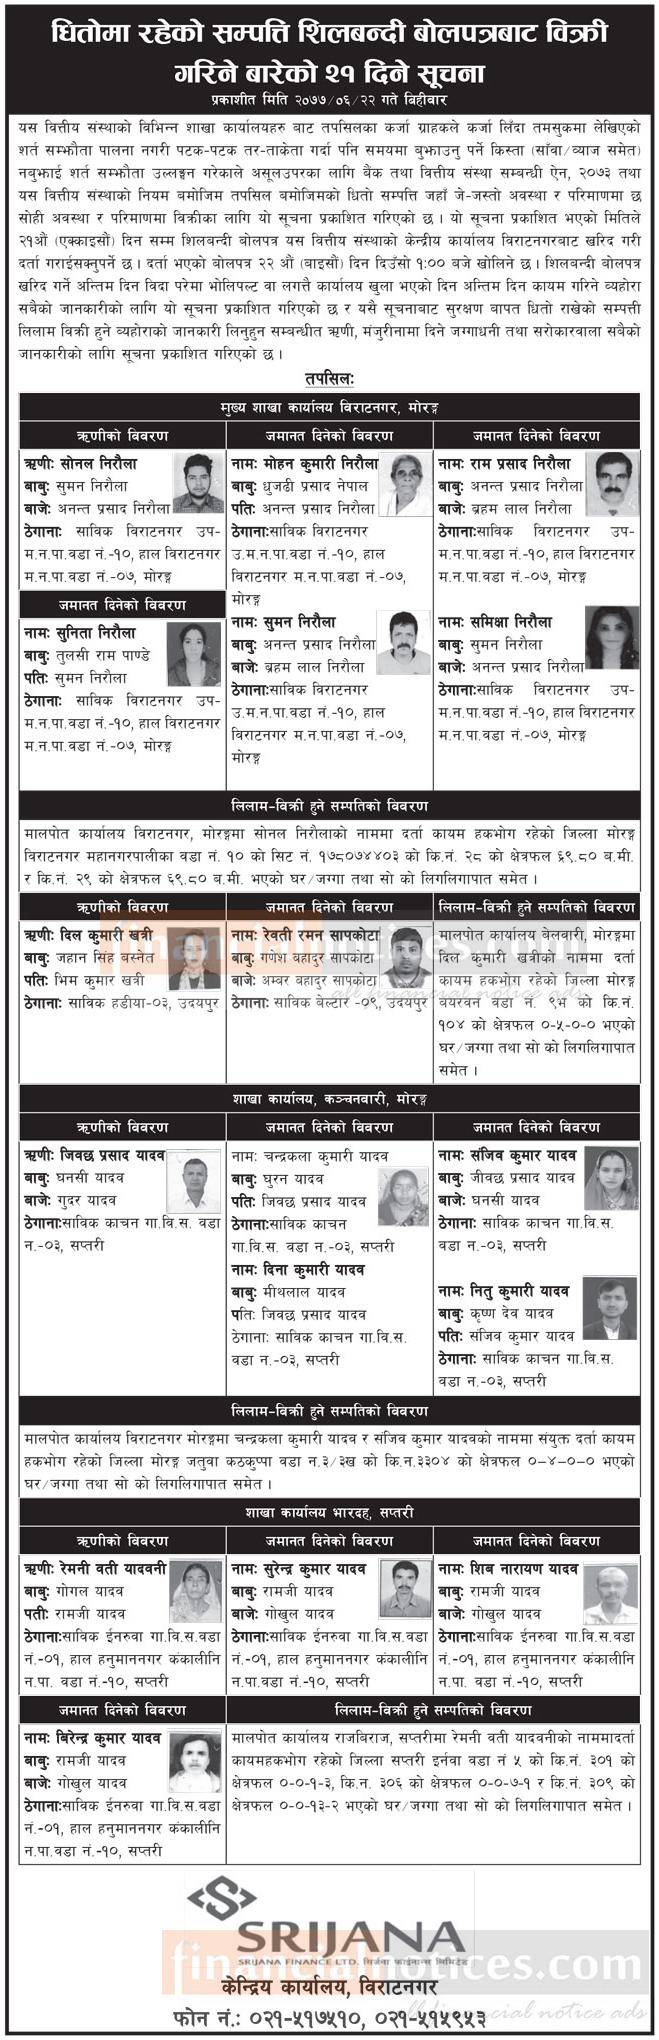 धितोमा रहेको सम्पत्ति शिलबन्दी बोलपत्रबाट विक्री
गरिने बारेको २१ दिने सूचना
प्रकाशीत मिति २०७७/०६/२२ गते बिहीबार
यस वित्तीय संस्थाको विभिन्न शाखा कार्यालयहरु बाट तपसिलका कर्जा ग्राहकले कर्जा लिँदा तमसुकमा लेखिएको
शर्त सम्झौता पालना नगरी पटक-पटक तर-ताकेता गर्दा पनि समयमा बुझाउनु पर्ने किस्ता (साँवा/ब्याज समेत)
नबुझाई शर्त सम्झौता उल्लङ्घन गरेकाले असूलउपरका लागि बैंक तथा वित्तीय संस्था सम्बन्धी ऐन, २०७३ तथा
यस वित्तीय संस्थाको नियम बमोजिम तपसिल बमोजिमको धितो सम्पत्ति जहाँ जे-जस्तो अवस्था र परिमाणमा छ
सोही अवस्था र परिमाणमा विक्रीका लागि यो सूचना प्रकाशित गरिएको छ । यो सूचना प्रकाशित भएको मितिले
२१औं (एक्काइसौं) दिन सम्म शिलबन्दी बोलपत्र यस वित्तीय संस्थाको केन्द्रीय कार्यालय विराटनगरबाट खरिद गरी
दर्ता गराईसक्नुपर्ने छ । दर्ता भएको बोलपत्र २२ औं (बाइसौं) दिन दिउँसो १:०० बजे खोलिने छ । शिलबन्दी बोलपत्र
खरिद गर्ने अन्तिम दिन विदा परेमा भोलिपल्ट वा लगत्तै कार्यालय खुला भएको दिन अन्तिम दिन कायम गरिने व्यहोरा
सबैको जानकारीको लागि यो सूचना प्रकाशित गरिएको छ र यसै सूचनाबाट सुरक्षण बापत धितो राखेको सम्पत्ती
लिलाम विक्री हुने व्यहोराको जानकारी लिनुहुन सम्बन्धीत ऋणी, मंजुरीनामा दिने जग्गाधनी तथा सरोकारवाला सबैको
जानकारीको लागि सूचना प्रकाशित गरिएको छ ।
तपसिलः
मुख्य शाखा कार्यालय विराटनगर, मोरङ्ग
ऋणीको विवरण
ऋणीः सोनल निरौला
बाबुः सुमन निरौला
बाजेः अनन्त प्रसाद निरौला
ठेगानाः साविक विराटनगर उप-
म.न.पा.वडा नं.-१०, हाल विराटनगर
म.न.पा.वडा नं.-०७, मोरङ्ग
जमानत दिनेको विवरण
नामः सुनिता निरौला
बाबुः तुलसी राम पाण्डे
पतिः सुमन निरौला
ठेगानाः साविक विराटनगर उप-
म.न.पा.वडा नं.-१०, हाल विराटनगर
म.न.पा.वडा नं.-०७, मोरङ्ग
जमानत दिनेको विवरण
नामः मोहन कुमारी निरौला
बाबुः धुजढी प्रसाद नेपाल
पतिः अनन्त प्रसाद निरौला
ठेगानाःसाविक विराटनगर
उ.म.न.पा.वडा नं.-१०, हाल
विराटनगर म.न.पा.वडा नं.-०७,
मोरङ्ग
नामः सुमन निरौला
बाबुः अनन्त प्रसाद निरौला
बाजेः ब्रहम लाल निरौला
ठेगानाःसाविक विराटनगर
उ.म.न.पा.वडा नं.-१०, हाल
विराटनगर म.न.पा.वडा नं.-०७,
मोरङ्ग
जमानत दिनेको विवरण
नामः राम प्रसाद निरौला
बाबुः अनन्त प्रसाद निरौला
बाजेः ब्रहम लाल निरौला
ठेगानाःसाविक विराटनगर उप-
म.न.पा.वडा नं.-१०, हाल विराटनगर
म.न.पा.वडा नं.-०७, मोरङ्ग
नामः समिक्षा निरौला
बाबुः सुमन निरौला
बाजेः अनन्त प्रसाद निरौला
ठेगानाःसाविक विराटनगर उप-
म.न.पा.वडा नं.-१०, हाल विराटनगर
म.न.पा.वडा नं.-०७, मोरङ्ग
लिलाम-बिक्री हुने सम्पतिको विवरण
मालपोत कार्यालय विराटनगर, मोरङ्गमा सोनल निरौलाको नाममा दर्ता कायम हकभोग रहेको जिल्ला मोरङ्ग
विराटनगर महानगरपालीका वडा नं. १० को सिट नं. १७८०७४४०३ को कि.नं. २८ को क्षेत्रफल ६९.८० ब.मी.
र कि.नं. २९ को क्षेत्रफल ६९.८० ब.मी. भएको घर/जग्गा तथा सो को लिगलिगापात समेत ।
ऋणीको विवरण
ऋणीः दिल कुमारी खत्री
बाबुः जहान सिंह बस्नेत
पतिः भिम कुमार खत्री
ठेगानाः साविक हडीया-०३, उदयपुर
जमानत दिनेको विवरण
नामः रेवती रमन सापकोटा
बाबुः गणेश बहादुर सापकोटा
बाजेः अम्वर बहादुर सापकोटा
ठेगानाः साविक बेल्टार -०९, उदयपुर
लिलाम-बिक्री हुने सम्पतिको विवरण
मालपोत कार्यालय बेलवारी, मोरङ्गमा
दिल कुमारी खत्रीको नाममा दर्ता
कायम हकभोग रहेको जिल्ला मोरङ्ग
बयरवन वडा नं. ९भ को कि.नं.
१०४ को क्षेत्रफल ०-५-०-० भएको
घर/जग्गा तथा सो को लिगलिगापात
समेत ।
financialnotices.com
all financial notice ads
शाखा कार्यालय, कञ्चनबारी, मोरङ्ग
ऋणीको विवरण
ऋणीः जिवछ प्रसाद यादव
बाबुः घनसी यादव
बाजेः गुदर यादव
ठेगानाःसाविक काचन गा.वि.स. वडा
न.-०३, सप्तरी
जमानत दिनेको विवरण
नामः चन्द्रकला कुमारी यादव
बाबुः घुरन यादव
पतिः जिवछ प्रसाद यादव
ठेगानाःसाविक काचन
गा.वि.स. वडा न.-०३, सप्तरी
नामः दिना कुमारी यादव
बाबुः मीथलाल यादव
पतिः जिवछ प्रसाद यादव
ठेगानाः साविक काचन गा.वि.स.
वडा न.-०३, सप्तरी
जमानत दिनेको विवरण
नामः संजिव कुमार यादव
बाबुः जीवछ प्रसाद यादव
बाजेः घनसी यादव
ठेगानाः साविक काचन गा.वि.स.
वडा न.-०३, सप्तरी
नामः नितु कुमारी यादव
बाबुः कृष्ण देव यादव
पतिः संजिव कुमार यादव
ठेगानाः साविक काचन गा.वि.स.
वडा न.-०३, सप्तरी
लिलाम-बिक्री हुने सम्पतिको विवरण
मालपोत कार्यालय विराटनगर मोरङ्गमा चन्द्रकला कुमारी यादव र संजिव कुमार यादवको नाममा संयुक्त दर्ता कायम
हकभोग रहेको जिल्ला मोरङ्ग जतुवा कठकुप्पा वडा न.३/३ख को कि.न.३३०४ को क्षेत्रफल ०-४-०-० भएको
घर/जग्गा तथा सो को लिगलिगापात समेत ।
शाखा कार्यालय भारदह, सप्तरी
ऋणीको विवरण
ऋणीः रेमनी वती यादवनी
बाबुः गोगल यादव
पतीः रामजी यादव
ठेगानाःसाविक ईनरुवा गा.वि.स.वडा
नं.-०१, हाल हनुमाननगर कंकालीनि
न.पा. वडा नं.-१०, सप्तरी
जमानत दिनेको विवरण
नामः सुरेन्द्र कुमार यादव
बाबुः रामजी यादव
बाजेः गोखुल यादव
ठेगानाःसाविक ईनरुवा गा.वि.स.वडा
नं.-०१, हाल हनुमाननगर कंकालीनि
न.पा. वडा नं.-१०, सप्तरी
जमानत दिनेको विवरण
नामः शिब नारायण यादव
बाबुः रामजी यादव
बाजेः गोखुल यादव
ठेगानाःसाविक ईनरुवा गा.वि.स.वडा
नं.-०१, हाल हनुमाननगर कंकालीनि
न.पा. वडा नं.-१०, सप्तरी
जमानत दिनेको विवरण
नामः बिरेन्द्र कुमार यादव
बाबुः रामजी यादव
बाजेः गोखुल यादव
ठेगानाःसाविक ईनरुवा गा.वि.स.वडा
नं.-०१, हाल हनुमाननगर कंकालीनि
न.पा.वडा नं.-१०, सप्तरी
लिलाम-बिक्री हुने सम्पतिको विवरण
मालपोत कार्यालय राजबिराज, सप्तरीमा रेमनी वती यादवनीको नाममादर्ता
कायमहकभोग रहेको जिल्ला सप्तरी इर्नवा वडा नं ५ को कि.नं. ३०१ को
क्षेत्रफल ०-०-१-३, कि.न. ३०६ को क्षेत्रफल ०-०-७-१ र कि.नं. ३०९ को
क्षेत्रफल ०-०-१३-२ भएको घर/जग्गा तथा सो को लिगलिगापात समेत ।
SRIJANA
SRIJANA FINANCE LTD. सिर्जना फाईनान्स लिमिटेड
financialnotices.com
केन्द्रिय कार्यालय, विराटनगर
फोन नं.: ०२१-५१७५१०, ०२१-५१५९५३
all financial notice ads